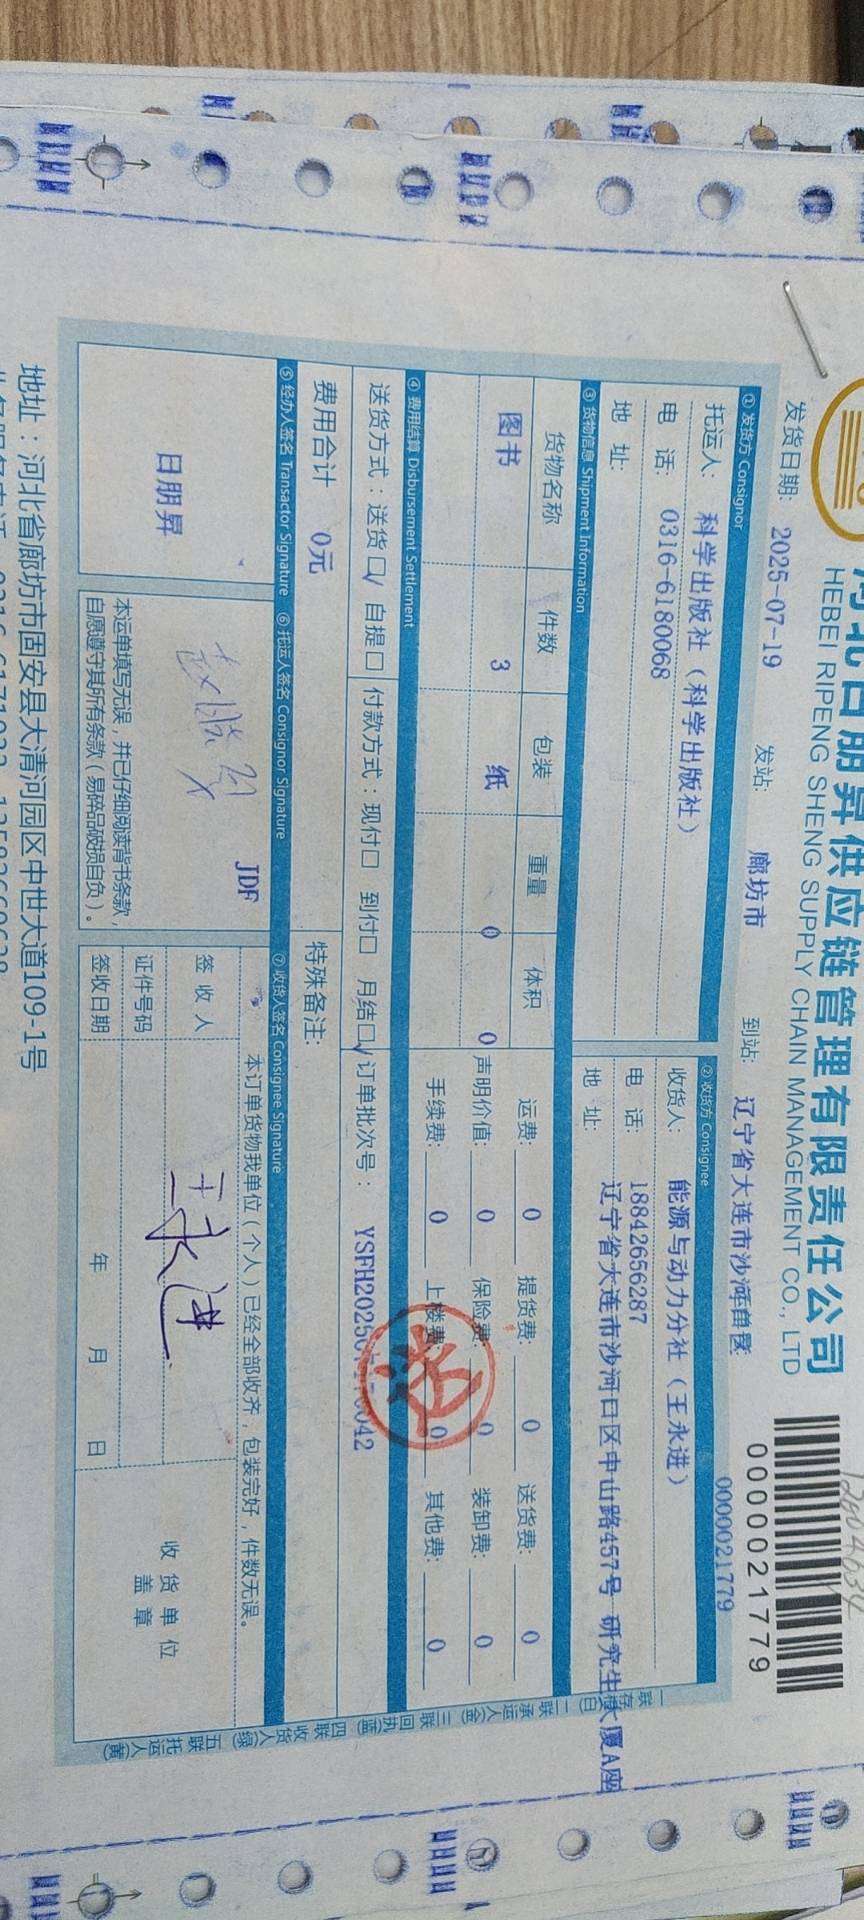 河北日朋昇供应链管理有限责任公司
HEBEI RIPENG SHENG SUPPLY CHAIN MANAGEMENT CO., LTD
0000021779
0000021779
发货日期: 2025-07-19 发站: 廊坊市 到站: 辽宁省大连市沙河
① 发货方 Consignor
托运人: 科学出版社（科学出版社）
电 话: 0316-6180068
地 址:
② 收货方 Consignee
收货人: 能源与动力分社（王永进）
电 话: 18842656287
地 址: 辽宁省大连市沙河口区中山路457号 研究生大厦A座
③ 货物信息 Shipment Information
货物名称 件数 包装 重量 体积
图书 3 纸 0 0
运费: 0 提货费: 0 送货费: 0
声明价值: 0 保险费: 0 装卸费: 0
手续费: 0 上楼费: 0 其他费: 0
④ 费用结算 Disbursement Settlement
送货方式：送货☑ 自提□ 付款方式：现付□ 到付□ 月结☑ 订单批次号：
费用合计 0元 特殊备注:
⑤ 经办人签名 Transactor Signature ⑥ 托运人签名 Consignor Signature ⑦ 收货人签名 Consignee Signature
日朋昇
JDF
本运单填写无误，并已仔细阅读背书条款，
自愿遵守其所有条款（易碎品破损自负）。
本订单货物我单位（个人）已经全部收齐，包装完好，件数无误。
签 收 人 王永进
证件号码
签收日期 年 月 日
收 货 单 位
盖 章
一联存根(白) 二联承运人(金) 三联回执(蓝) 四联收货人(绿) 五联托运人(黄)
地址：河北省廊坊市固安县大清河园区中世大道109-1号